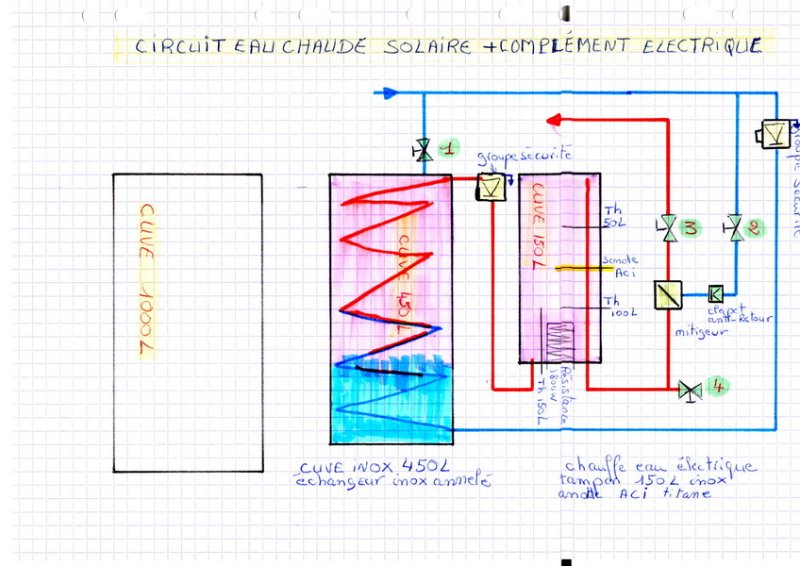 CIRCUIT EAU CHAUDE SOLAIRE + COMPLÉMENT ELECTRIQUE
1
groupe sécurité
groupe sécurité
CUVE 1000L
CUVE 450L
CUVE 150L
Th
50L
Sonde
ACi
Th
100L
3
2
clapet
anti-retour
mitigeur
Th 150L
Résistance
1800W
4
CUVE iNOX 450L
échangeur inox annelé
chauffe eau électrique
tampon 150L inox
anode ACi titane